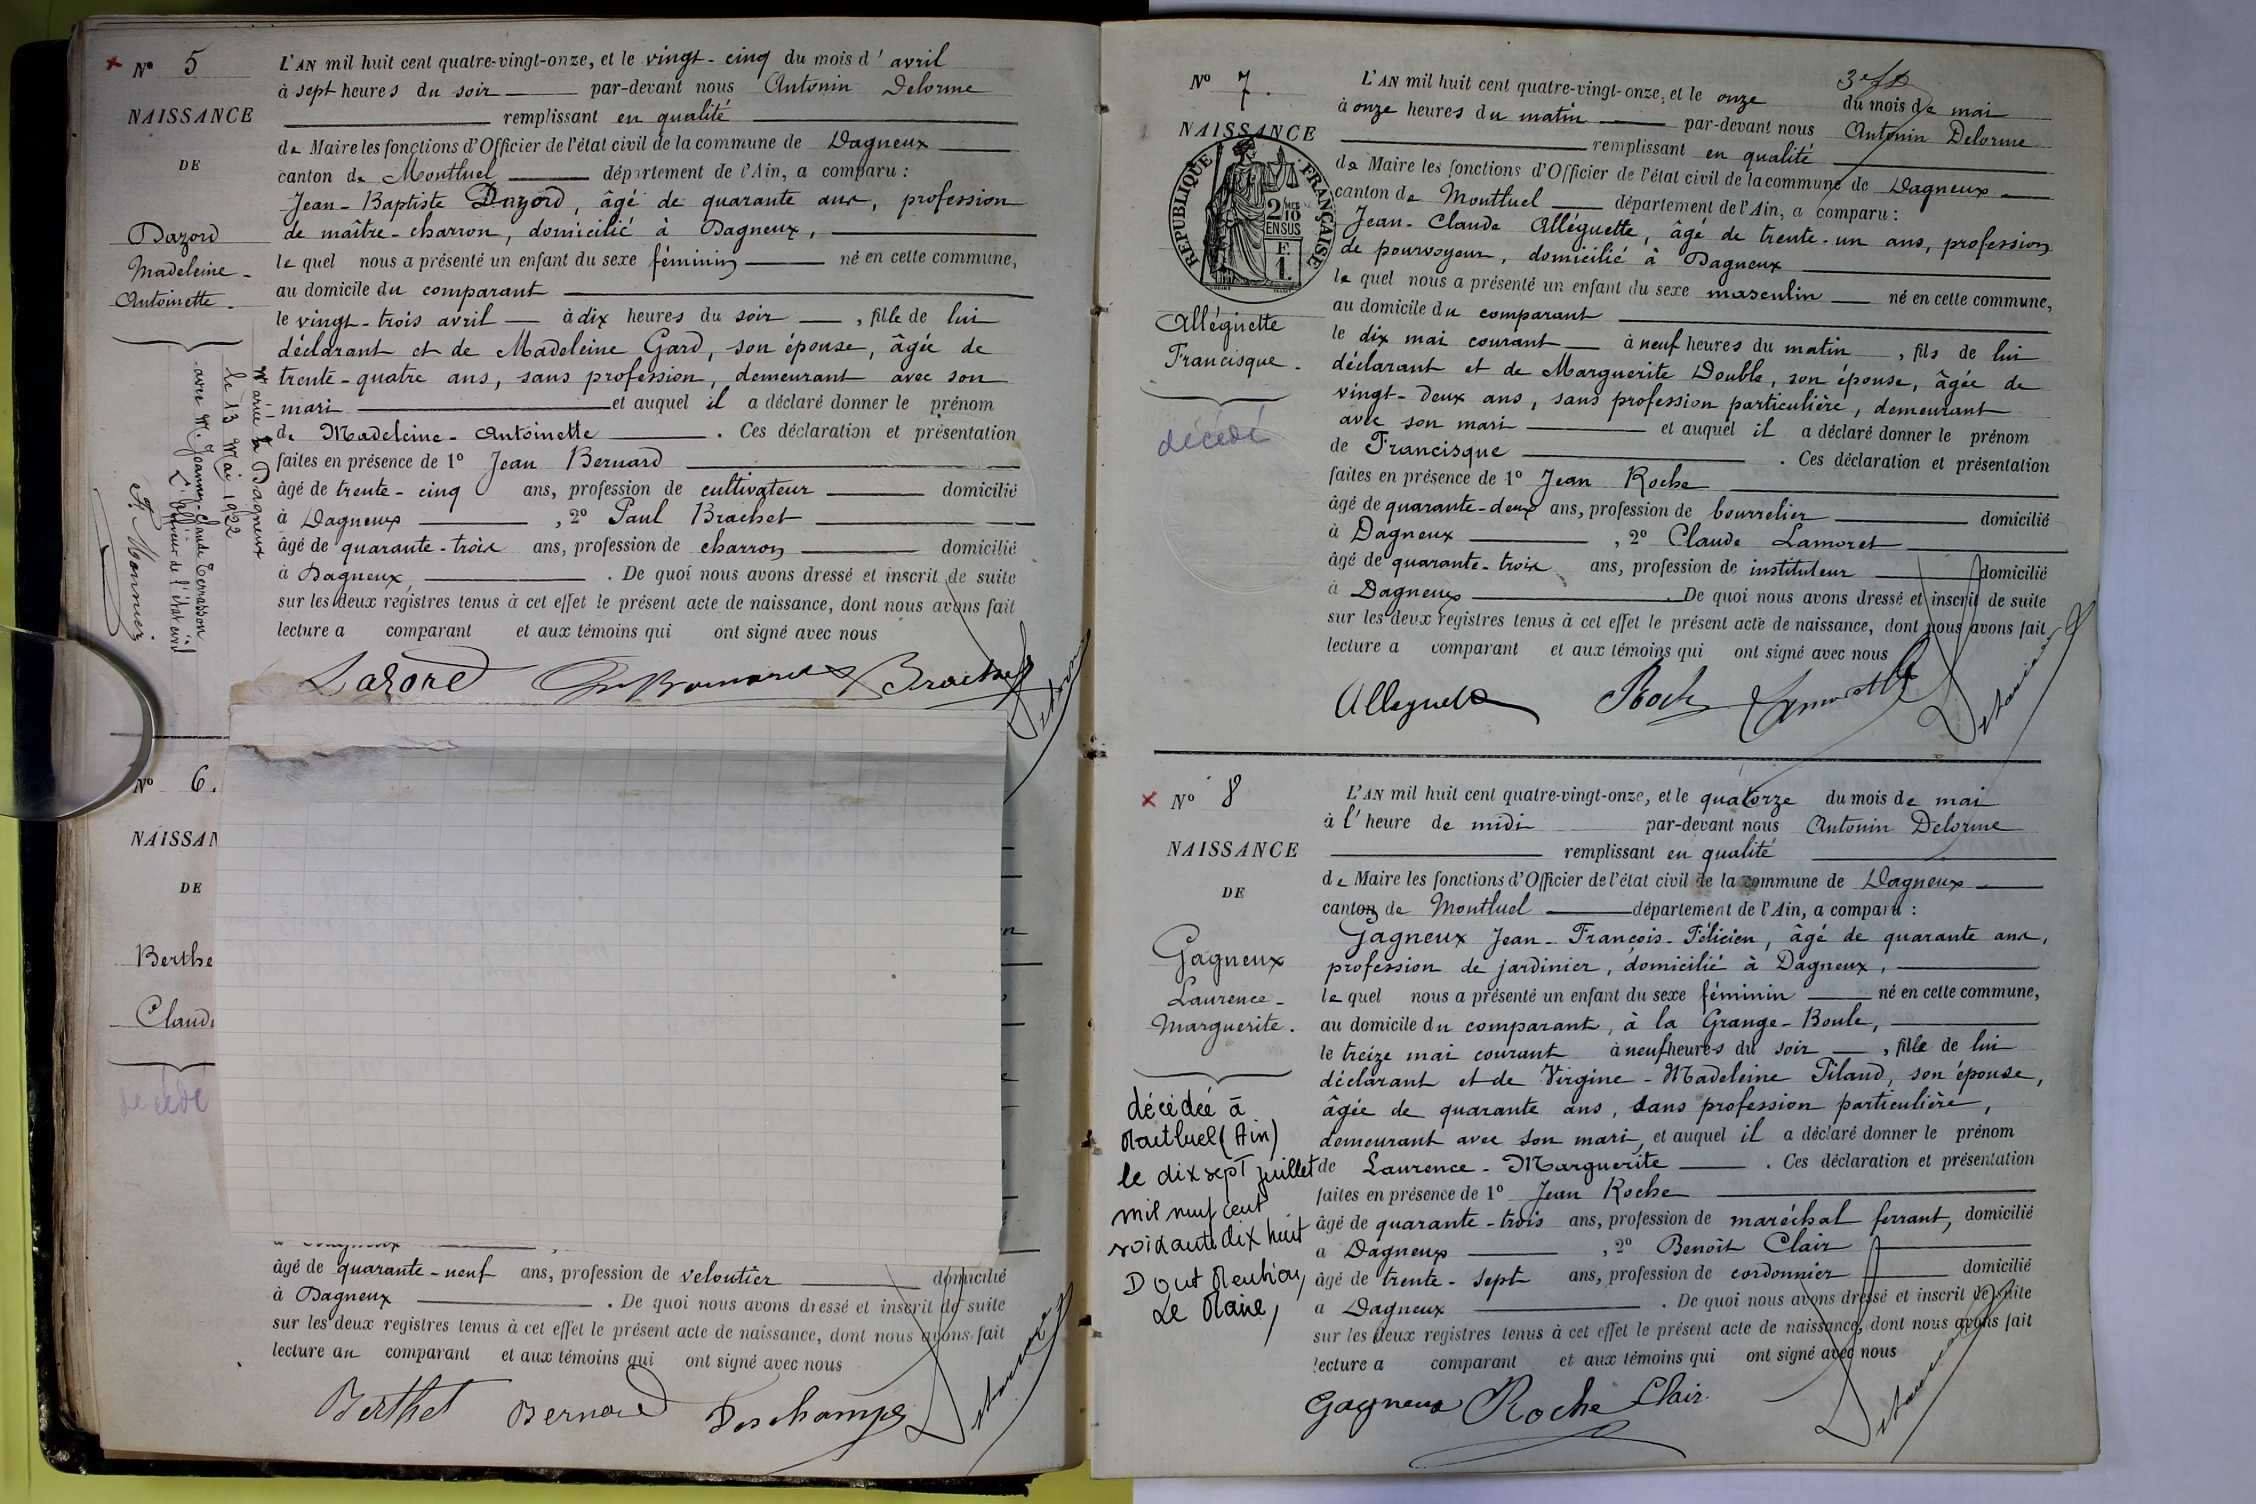 N° 5
NAISSANCE
DE
Dazord
Madeleine-
Antoinette.
Marié à Dagneux
le 13 Mai 1922
avec M. Jeanney-Claude Terrasson
L'officier de l'état civil
F. Monnier
L'AN mil huit cent quatre-vingt-onze, et le vingt-cinq du mois d'avril
à sept heures du soir par-devant nous Antonin Delorme
remplissant en qualité
de Maire les fonctions d'Officier de l'état civil de la commune de Dagneux
canton de Montluel département de l'Ain, a comparu :
Jean-Baptiste Dazord, âgé de quarante ans, profession
de maître-charron, domicilié à Dagneux,
lequel nous a présenté un enfant du sexe féminin né en cette commune,
au domicile du comparant
le vingt-trois avril à dix heures du soir, fille de lui
déclarant et de Madeleine Gard, son épouse, âgée de
trente-quatre ans, sans profession, demeurant avec son
mari et auquel il a déclaré donner le prénom
de Madeleine-Antoinette. Ces déclaration et présentation
faites en présence de 1° Jean Bernard
âgé de trente-cinq ans, profession de cultivateur domicilié
à Dagneux, 2° Paul Brachet
âgé de quarante-trois ans, profession de charron domicilié
à Dagneux,. De quoi nous avons dressé et inscrit de suite
sur les deux registres tenus à cet effet le présent acte de naissance, dont nous avons fait
lecture a comparant et aux témoins qui ont signé avec nous
Dazord Bernard Brachet Delorme
N° 6.
NAISSAN
DE
Berthe
Claud
décédé
âgé de quarante-neuf ans, profession de veloutier domicilié
à Dagneux. De quoi nous avons dressé et inscrit de suite
sur les deux registres tenus à cet effet le présent acte de naissance, dont nous avons fait
lecture au comparant et aux témoins qui ont signé avec nous
Berthet Bernard Deschamps Delorme
N° 7.
NAISSANCE
RÉPUBLIQUE FRANÇAISE
2/10
EN SUS
Alléguette
Francisque.
décédé
L'AN mil huit cent quatre-vingt-onze, et le onze du mois de mai
à onze heures du matin par-devant nous Antonin Delorme
remplissant en qualité
de Maire les fonctions d'Officier de l'état civil de la commune de Dagneux
canton de Montluel département de l'Ain, a comparu :
Jean-Claude Alléguette, âgé de trente-un ans, profession
de pourvoyeur, domicilié à Dagneux
lequel nous a présenté un enfant du sexe masculin né en cette commune,
au domicile du comparant
le dix mai courant à neuf heures du matin, fils de lui
déclarant et de Marguerite Double, son épouse, âgée de
vingt-deux ans, sans profession particulière, demeurant
avec son mari et auquel il a déclaré donner le prénom
de Francisque. Ces déclaration et présentation
faites en présence de 1° Jean Roche
âgé de quarante-deux ans, profession de bourrelier domicilié
à Dagneux, 2° Claude Lamoret
âgé de quarante-trois ans, profession de instituteur domicilié
à Dagneux. De quoi nous avons dressé et inscrit de suite
sur les deux registres tenus à cet effet le présent acte de naissance, dont nous avons fait
lecture a comparant et aux témoins qui ont signé avec nous
Roch Delorme
N° 8
NAISSANCE
DE
Gagneux
Laurence-
Marguerite.
décédée à
Montluel (Ain)
le dix sept juillet
mil neuf cent
soixante dix huit
Dont Mention,
Le Maire,
L'AN mil huit cent quatre-vingt-onze, et le quatorze du mois de mai
à l'heure de midi par-devant nous Antonin Delorme
remplissant en qualité
de Maire les fonctions d'Officier de l'état civil de la commune de Dagneux
canton de Montluel département de l'Ain, a comparu :
Gagneux Jean-François-Félicien, âgé de quarante ans,
profession de jardinier, domicilié à Dagneux,
lequel nous a présenté un enfant du sexe féminin né en cette commune,
au domicile du comparant, à la Grange-Boule,
le treize mai courant à neuf heures du soir, fille de lui
déclarant et de Virgine-Madeleine Pilaud, son épouse,
âgée de quarante ans, sans profession particulière,
demeurant avec son mari, et auquel il a déclaré donner le prénom
de Laurence-Marguerite. Ces déclaration et présentation
faites en présence de 1° Jean Roche
âgé de quarante-trois ans, profession de maréchal ferrant, domicilié
a Dagneux, 2° Benoît Clair
âgé de trente-sept ans, profession de cordonnier domicilié
a Dagneux. De quoi nous avons dressé et inscrit de suite
sur les deux registres tenus à cet effet le présent acte de naissance, dont nous avons fait
lecture a comparant et aux témoins qui ont signé avec nous
Gagneux Roche Clair Delorme